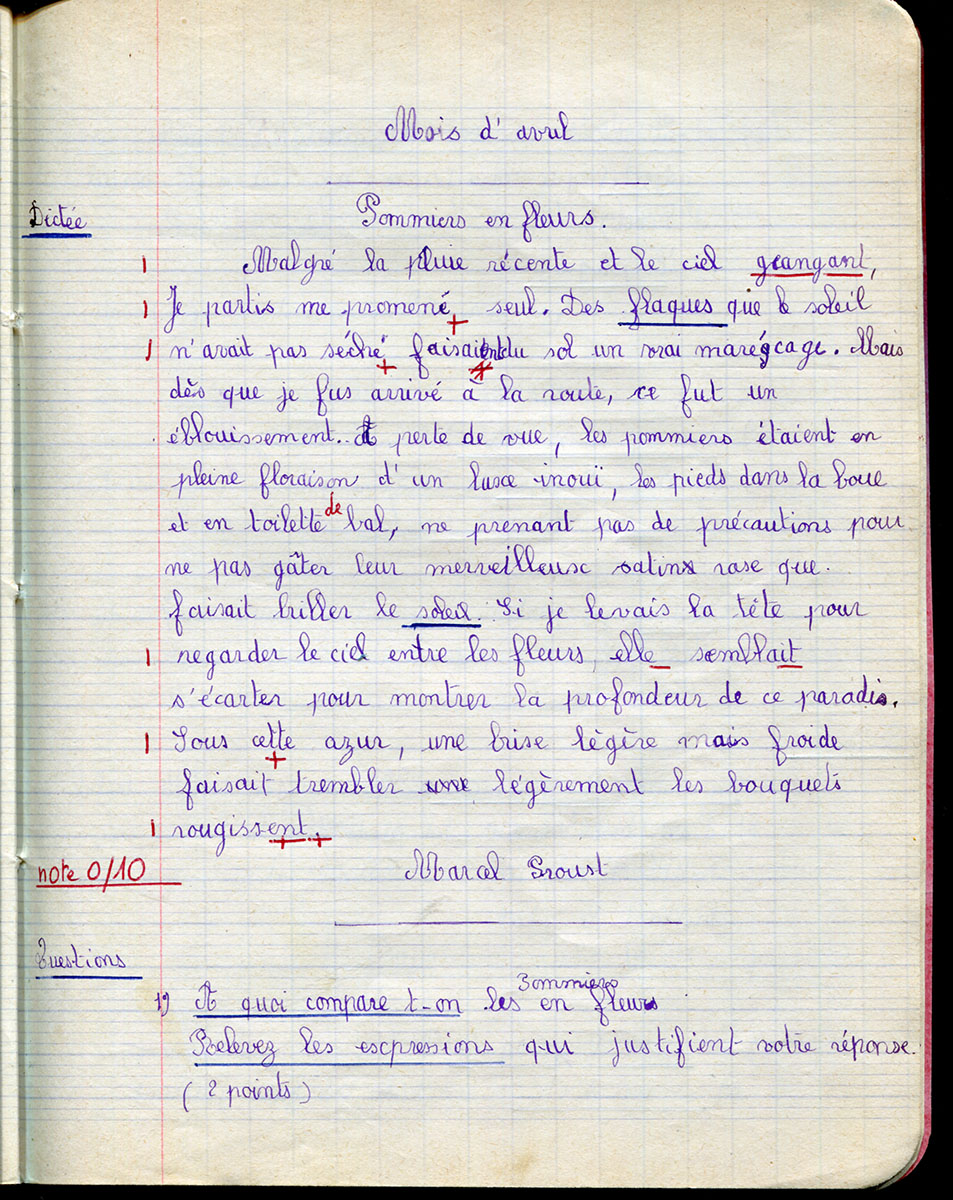 Mois d'avril
Dictée
Pommiers en fleurs.
Malgré la pluie récente et le ciel
Je partis me promené seul. Des flaques que le soleil
n'avait pas séché faisaient du sol un vrai marécage. Mais
dès que je fus arrivé à la route, ce fut un
éblouissement. A perte de vue, les pommiers étaient en
pleine floraison d'un luxe inouï, les pieds dans la boue
et en toilette de bal, ne prenant pas de précautions pour
ne pas gâter leur merveilleuse satin rose que
faisait briller le soleil. Si je levais la tête pour
regarder le ciel entre les fleurs, elle semblait
s'écarter pour montrer la profondeur de ce paradis.
Sous cette azur, une brise légère mais froide
faisait trembler légèrement les bouquets
rougissent.
note 0/10
Marcel Proust
Questions
1) A quoi compare t-on les Pommiers en fleurs
Relevez les expressions qui justifient votre réponse.
(2 points)